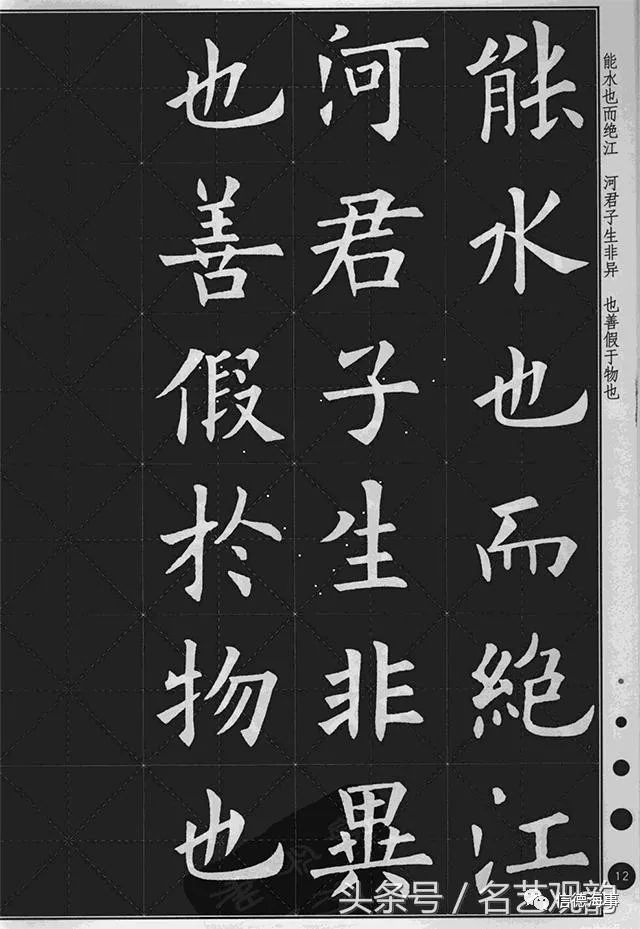 能水也而絶江
河君子生非異
也善假於物也
能水也而绝江 河君子生非异 也善假于物也
12
头条号 / 名艺观韵
信德海事